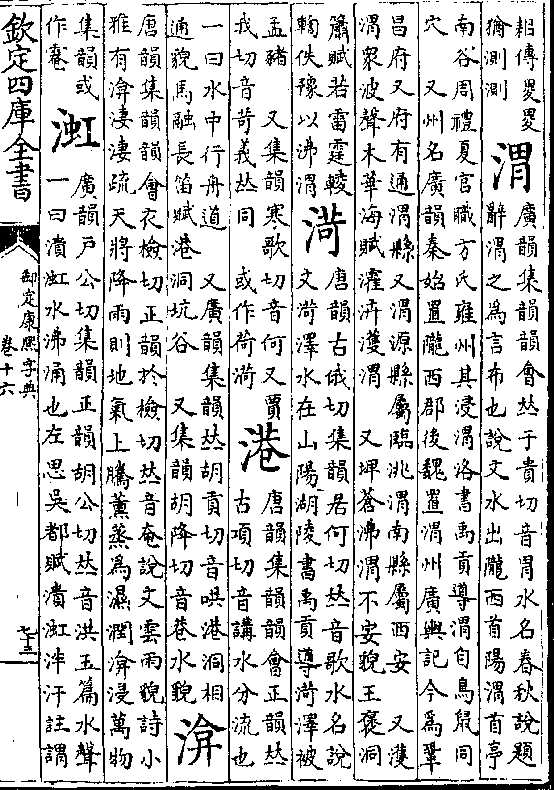 耜傳畟畟
猶測測
渭
廣韻集韻韻會𠀤于貴切音胃水名春秋說題
辭渭之爲言布也說文水出隴西首陽渭首亭
南谷周禮夏官職方氏雍州其浸渭洛書禹貢導渭自鳥鼠同
穴 又州名廣韻秦始置隴西郡後魏置渭州廣輿記今爲鞏
昌府又府有通渭縣又渭源縣屬臨洮渭南縣屬西安 又濩
渭衆波聲木華海賦㶖泋濩渭 又埤蒼沸渭不安貌王褒洞
簫賦若雷霆輘
輷佚豫以沸渭
渮
唐韻古俄切集韻居何切𠀤音歌水名說
文渮澤水在山陽湖陵書禹貢導渮澤被
孟豬 又集韻寒歌切音何又賈
我切音苛義𠀤同 或作荷菏
港
唐韻集韻韻會正韻𠀤
古項切音講水分流也
一曰水中行舟道 又廣韻集韻𠀤胡貢切音哄港洞相
通貌馬融長笛賦港洞坑谷 又集韻胡降切音巷水貌
渰
唐韻集韻韻會衣檢切正韻於檢切𠀤音奄說文雲雨貌詩小
雅有渰淒淒疏天將降雨則地氣上騰薰蒸爲濕潤渰浸萬物
集韻或
作
渱
廣韻戸公切集韻正韻胡公切𠀤音洪玉篇水聲
一曰濆渱水沸涌也左思吳都賦濆渱泮汗註謂
欽定四庫全書
御定康熙字典
卷十六
七十三